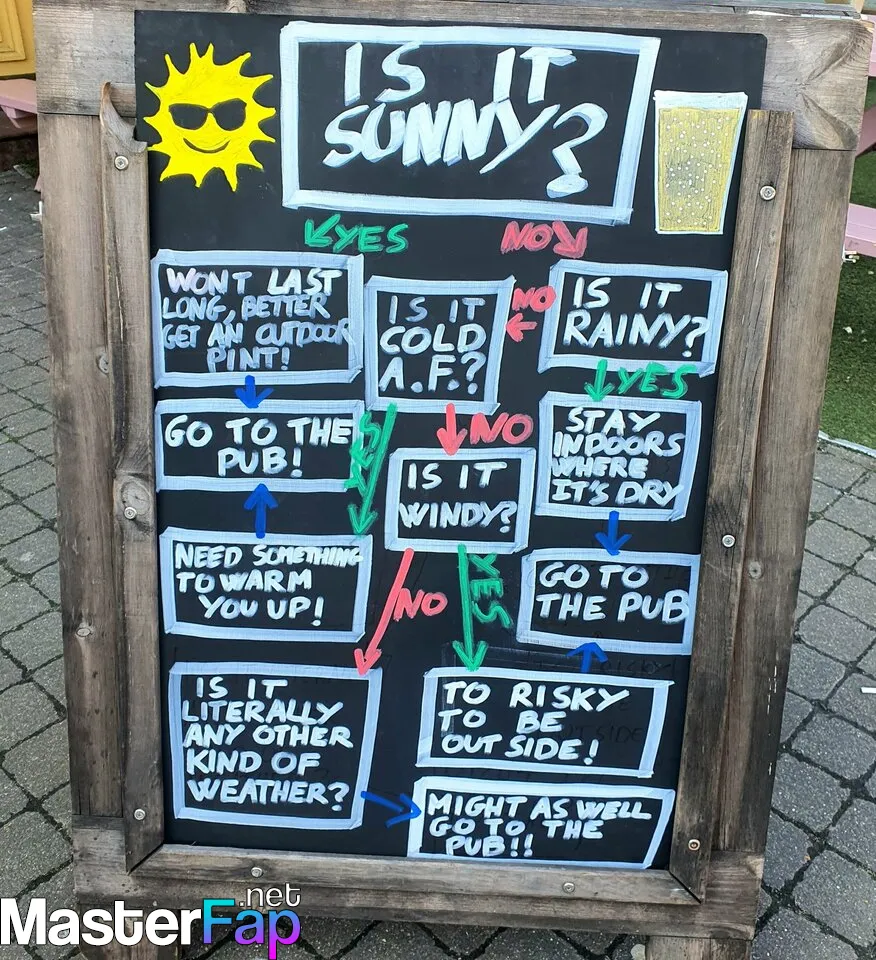 IS IT
SUNNY?
YES
NO
WONT LAST
LONG, BETTER
GET AN OUTDOOR
PINT!
IS IT
COLD
A.F.?
NO
IS IT
RAINY?
YES
GO TO THE
PUB!
YES
NO
STAY
INDOORS
WHERE
IT'S DRY
IS IT
WINDY?
NEED SOMETHING
TO WARM
YOU UP!
NO
YES
GO TO
THE PUB
IS IT
LITERALLY
ANY OTHER
KIND OF
WEATHER?
TO RISKY
TO BE
OUT SIDE!
MIGHT AS WELL
GO TO THE
PUB!!
MasterFap.net